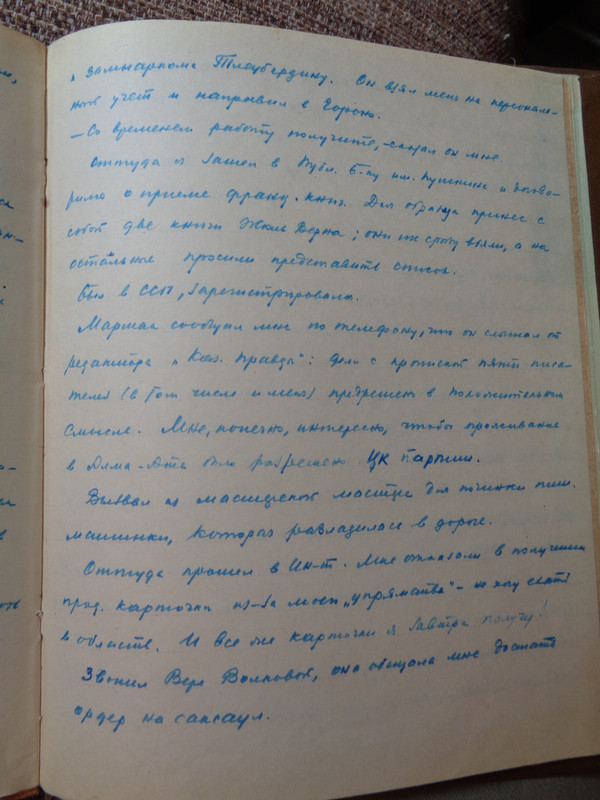 к замнаркома Тлеубердину. Он взял меня на персональ-
ный учет и направил в Гороно.
— Со временем работу получите, – сказал он мне.
Оттуда я зашел в Публ. Б-ку им. Пушкина и погово-
рил о приеме франц. книг. Для образца принес с
собой две книги Жюль Верна; они их сразу взяли, а на
остальное просили представить список.
Был в ССП, зарегистрировался.
Маршак сообщил мне по телефону, что он слышал от
редактора „Каз. Правды“: дело с пропиской пяти писа-
телей (в том числе и меня) предрешено в положительном
смысле. Мне, конечно, интересно, чтобы проживание
в Алма-Ата было разрешено ЦК Партии.
Вызвал из мастерской мастера для починки пиш.
машинки, которая разладилась в дороге.
Оттуда прошел в Ин-т. Мне отказали в получении
прод. карточки из-за моего „упрямства“ – не хочу ехать
в область. И все же карточки я завтра получу!
Звонил Вере Волковой, она обещала мне достать
ордер на саксаул.